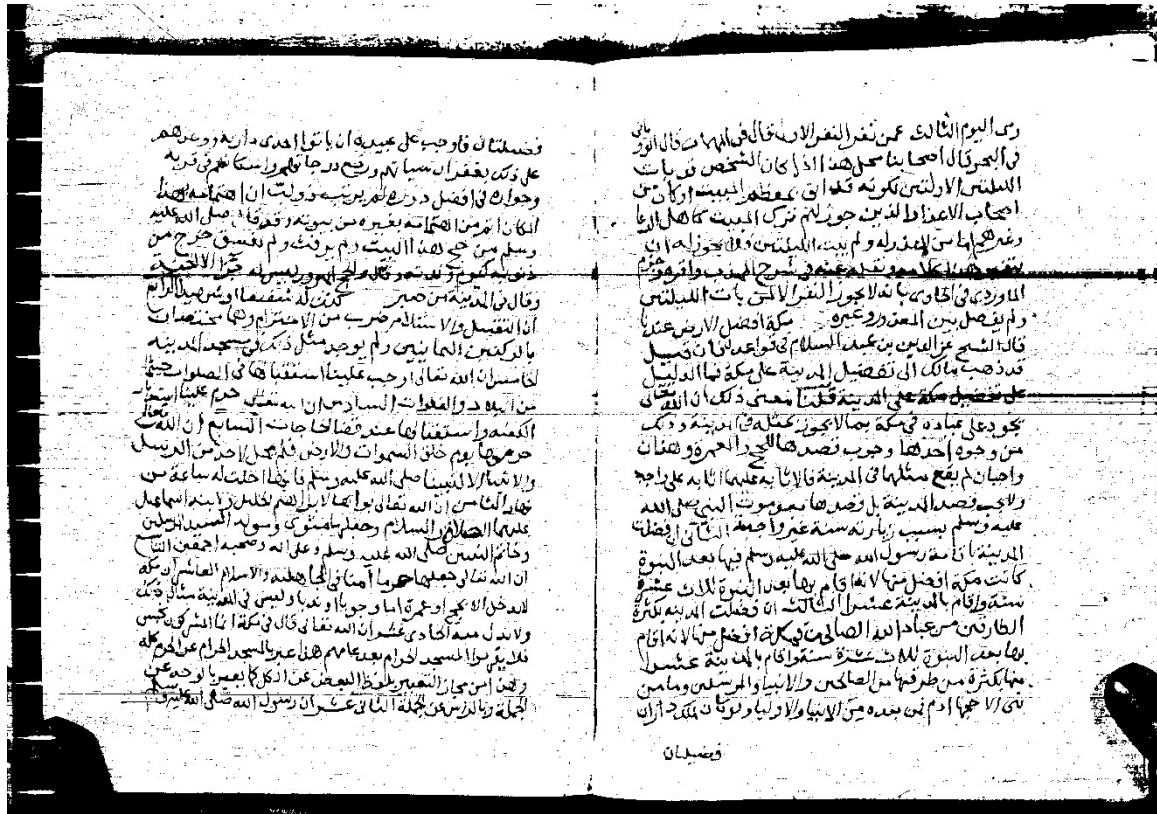 رمى اليوم الثالث عمن نفر النفر الاول قال في المهمات قال الروياني
في البحر قال اصحابنا محل هذا اذا كان الشخص قد بات
الليلتين الاولتين لكونه قد اتى بمعظم المبيت او كان من
اصحاب الاعذار الذين جوز لهم ترك المبيت كاهل الرعا
وغيرهم اما من لا عذر له ولم يبت الليلتين فلا يجوز له ان
ينفر هذا كلامه ونقله عنه في شرح المهذب واقره وجزم
الماوردي في الحاوي بانه لا يجوز النفر الا لمن بات الليلتين
ولم يفصل بين المعذور وغيره مكة افضل الارض عندنا
قال الشيخ عز الدين بن عبد السلام في قواعده فان قيل
قد ذهب مالك الى تفضيل المدينة على مكة فما الدليل
على تفضيل مكة على المدينة قلنا معنى ذلك ان الله تعالى
يجود على عباده في مكة بما لا يجود بمثله في المدينة وذلك
من وجوه احدها وجوب قصدها للحج والعمرة وهذان
واجبان لم يقع مثلهما في المدينة فالاثابة عليهما اثابة على واجب
ولا يجب قصد المدينة بل قصدها بعد موت النبي صلى الله
عليه وسلم بسبب زيارته سنة غير واجبة الثاني ان فضلت
المدينة باقامة رسول الله صلى الله عليه وسلم فيها بعد النبوة
كانت مكة افضل منها لانه اقام بها بعد النبوة ثلاث عشرة
سنة واقام بالمدينة عشرا الثالث ان فضلت المدينة بكثرة
الطارقين من عباد الله الصالحين فمكة افضل منها لانه اقام
بها بعد النبوة ثلاث عشرة سنة واقام بالمدينة عشرا
منها بكثرة من طرقها من الصالحين والانبيا والمرسلين وما من
نبي الا حجها ادم فمن بعده من الانبيا والاوليا ولو كان لملك داران
فضيلتان
فضيلتان فاوجب على عبيده ان ياتوا احدى داريه ووعدهم
على ذلك بغفران سياتهم ورفع درجاتهم واسكانهم في قربه
وجواره في افضل دوره لم يرتب ذو لب ان اهتمامه بهذا
المكان اتم من اهتمامه بغيره من بيوته وقد قال صلى الله عليه
وسلم من حج هذا البيت ولم يرفث ولم يفسق خرج من
ذنوبه كيوم ولدته وقال الحج المبرور ليس له جزا الا الجنة
وقال في المدينة من صبر كنت له شفيعا او شهيدا الرابع
ان التقبيل والاستلام ضرب من الاحترام وهما مختصان
بالركنين اليمانيين ولم يوجد مثل ذلك في مسجد المدينة
الخامس ان الله تعالى اوجب علينا استقبالها في الصلوات حيثما كنا
من البلاد والفلوات السادس ان الله تعالى حرم علينا استدبار
الكعبة واستقبالها عند قضا الحاجات السابع ان الله تعالى
حرمها يوم خلق السموات والارض فلم تحل لاحد من الرسل
والانبيا الا لنبينا صلى الله عليه وسلم فانها احلت له ساعة من
نهار الثامن ان الله تعالى بواها لابراهيم الخليل وابنه اسماعيل
عليهما الصلاة والسلام وجعلها مثوى رسوله سيد المرسلين
وخاتم النبيين صلى الله عليه وسلم وعلى اله وصحبه اجمعين التاسع
ان الله تعالى جعلها حرما آمنا في الجاهلية والاسلام العاشر ان مكة
لا تدخل الا بحج او عمرة اما وجوبا او ندبا وليس في المدينة مثل ذلك
ولا بدل منه الحادي عشر ان الله تعالى قال في مكة انما المشركون نجس
فلا يقربوا المسجد الحرام بعد عامهم هذا عبر بالمسجد الحرام عن الحرم كله
وهذا من مجاز التعبير بلفظ البعض عن الكل كما يعبر بالوجه عن
الجملة وبالراس عن الجملة الثاني عشر ان رسول الله صلى الله عليه وسلم